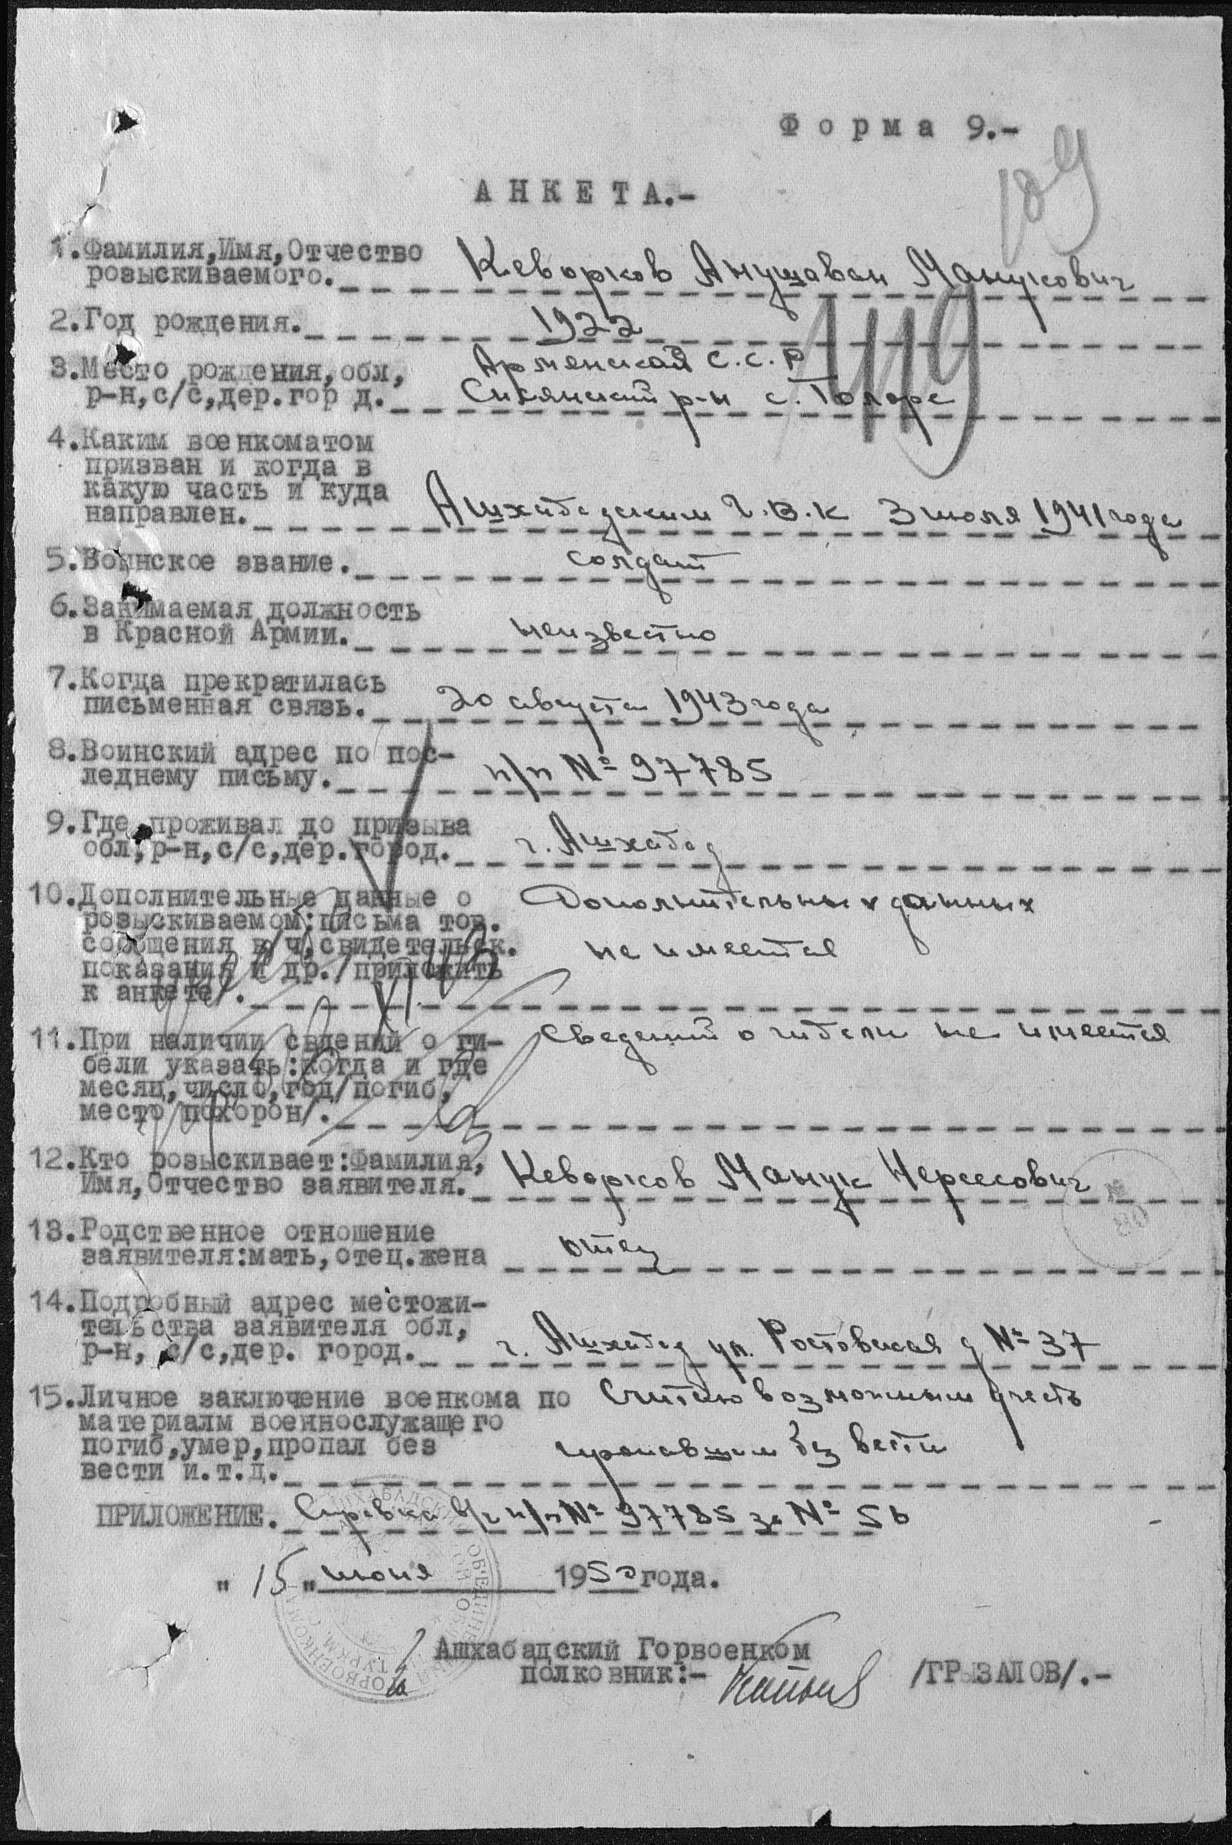 Форма 9.-
109
АНКЕТА.-
1. Фамилия, Имя, Отчество
розыскиваемого. Кеворков Анушаван Манукович
119
2. Год рождения. 1922
3. Место рождения, обл, Арменская С.С.Р
р-н, с/с, дер. гор д. Сисянский р-н с.
4. Каким военкоматом
призван и когда в
какую часть и куда
направлен. Ашхабадским Г.В.К 3 июля 1941 года
5. Воинское звание. солдат
6. Занимаемая должность
в Красной Армии. неизвестно
7. Когда прекратилась
письменная связь. 20 августа 1943 года
8. Воинский адрес по пос-
леднему письму. п/п № 97785
9. Где проживал до призыва
обл, р-н, с/с, дер. город. г. Ашхабад
10. Дополнительные данные о Дополнительных данных
розыскиваемом: письма тов.
сообщения в/ч, свидетельск. не имеется
показания и др./приложить
к анкете/.
XI.43
11. При наличии свдений о ги- Сведений о гибели не имеется
бели указать: когда и где
месяц, число, год/погиб,
место похорон/.
12. Кто розыскивает: Фамилия,
Имя, Отчество заявителя. Кеворков Манук Нерсесович
13. Родственное отношение
заявителя: мать, отец. жена отец
14. Подробный адрес местожи-
тельства заявителя обл,
р-н, с/с, дер. город. г. Ашхабад ул. Ростовская д № 37
15. Личное заключение военкома по Считаю возможным учесть
материалм военнослужащего
погиб, умер, пропал без пропавшим без вести
вести и.т.д.
ПРИЛОЖЕНИЕ. Справка в/ч п/п № 97785 за № 56
"15" июня 1950 года.
Ашхабадский Горвоенком
полковник:- /ГРЫЗАЛОВ/.-